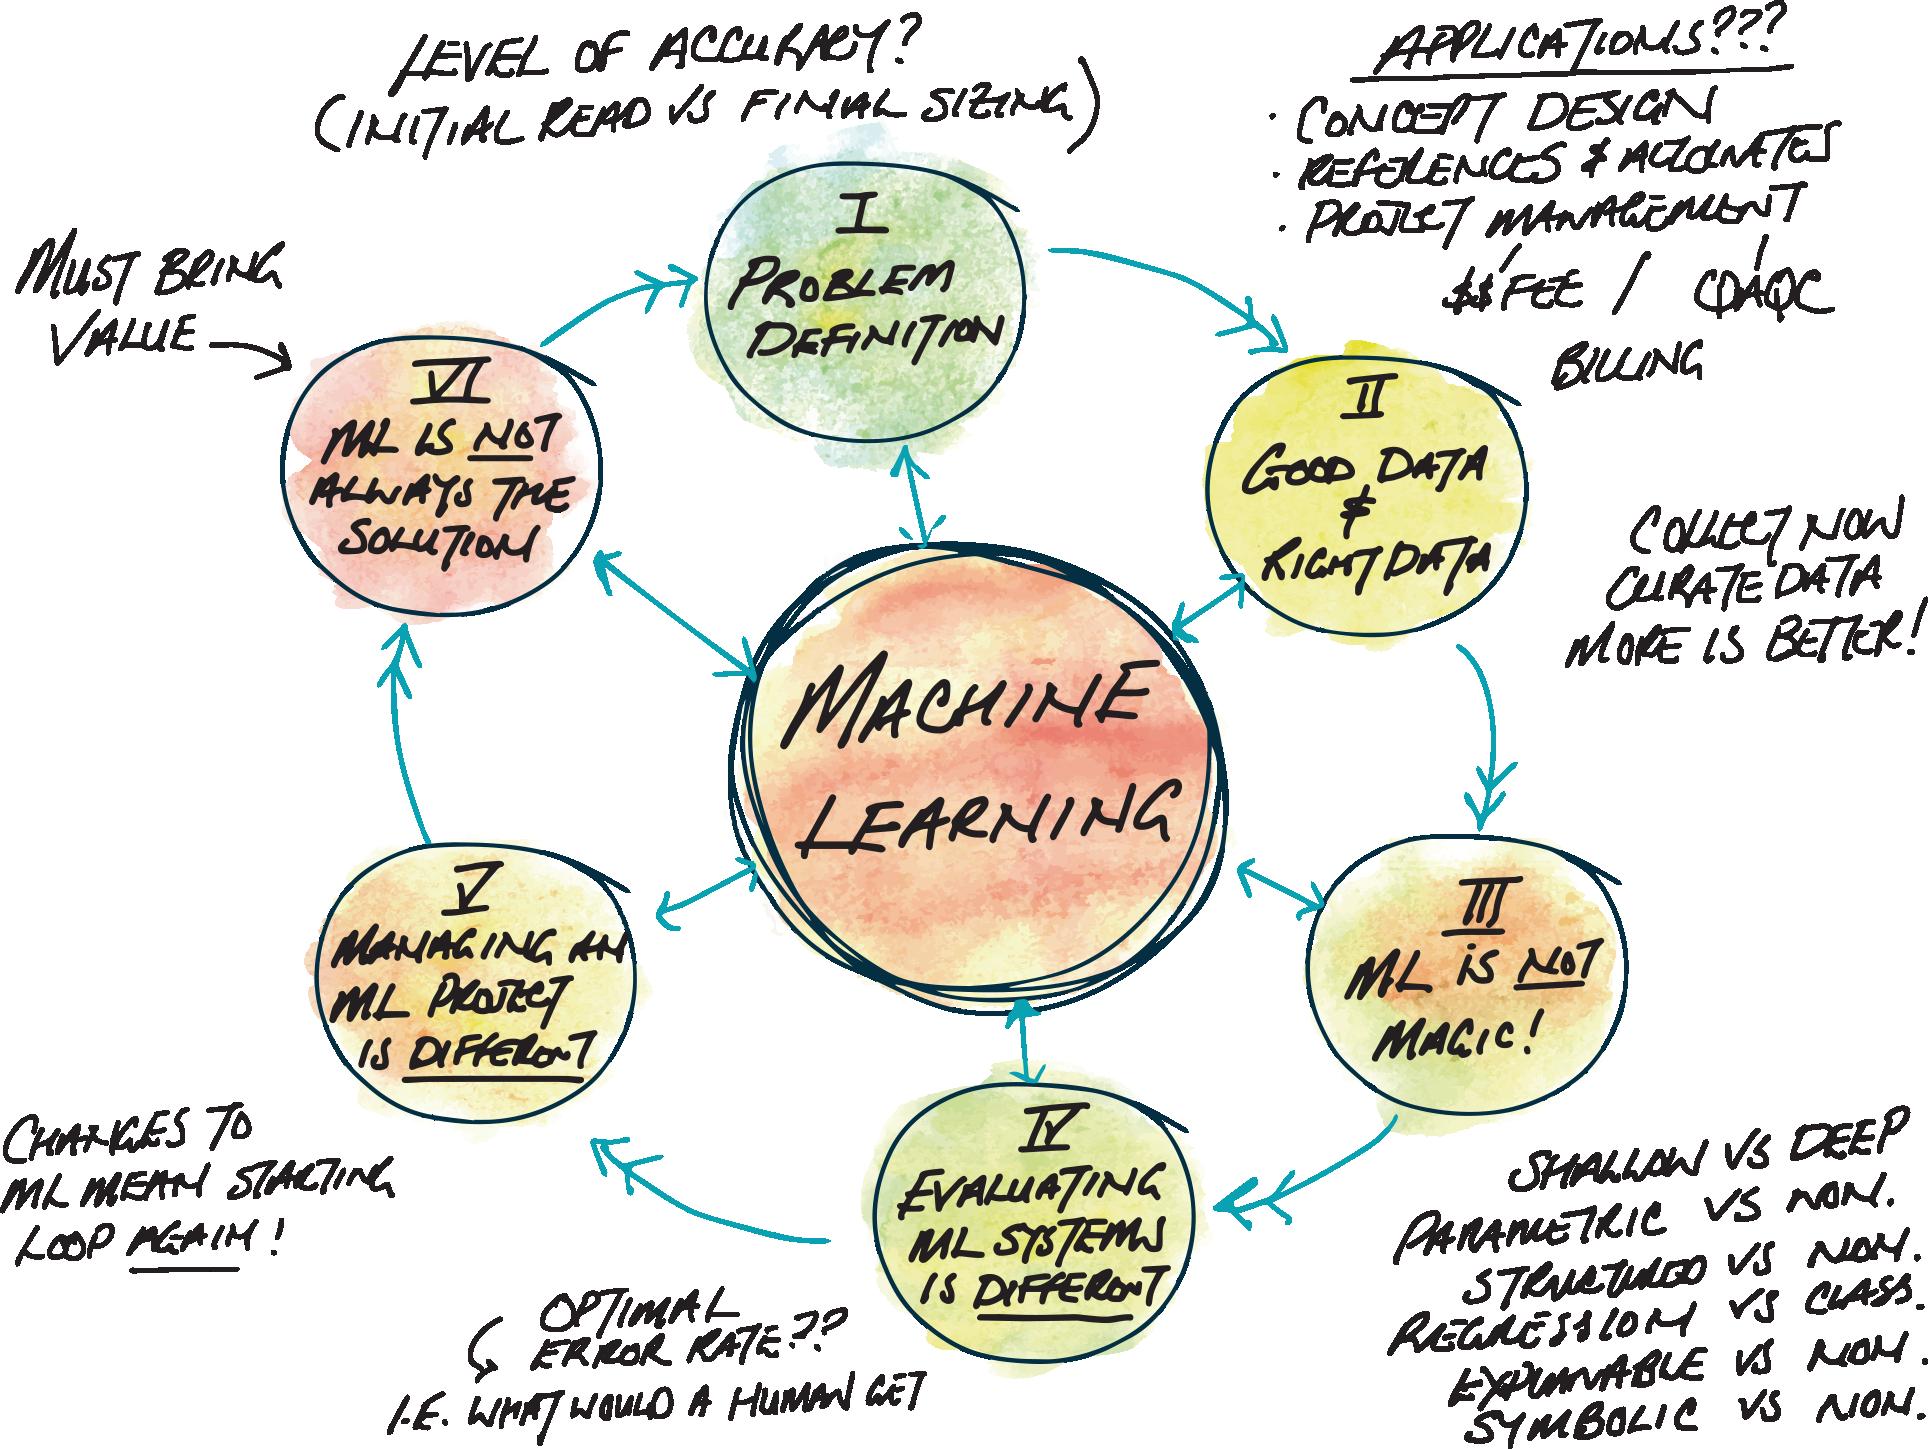 LEVEL OF ACCURACY?
(INITIAL READ VS FINAL SIZING)
APPLICATIONS???
· CONCEPT DESIGN
· REFERENCES & ALTERNATES
· PROJECT MANAGEMENT
$$ FEE / QAQC
BILLING
I
PROBLEM
DEFINITION
II
GOOD DATA
&
RIGHT DATA
COLLECT NOW
CURATE DATA
MORE IS BETTER!
III
ML IS NOT
MAGIC!
SHALLOW VS DEEP
PARAMETRIC VS NON.
STRUCTURED VS NON.
REGRESSION VS CLASS.
EXPLAINABLE VS NON.
SYMBOLIC VS NON.
IV
EVALUATING
ML SYSTEMS
IS DIFFERENT
OPTIMAL
ERROR RATE??
I.E. WHAT WOULD A HUMAN GET
V
MANAGING AN
ML PROJECT
IS DIFFERENT
CHANGES TO
ML MEAN STARTING
LOOP AGAIN!
VI
ML IS NOT
ALWAYS THE
SOLUTION
MUST BRING
VALUE
MACHINE
LEARNING